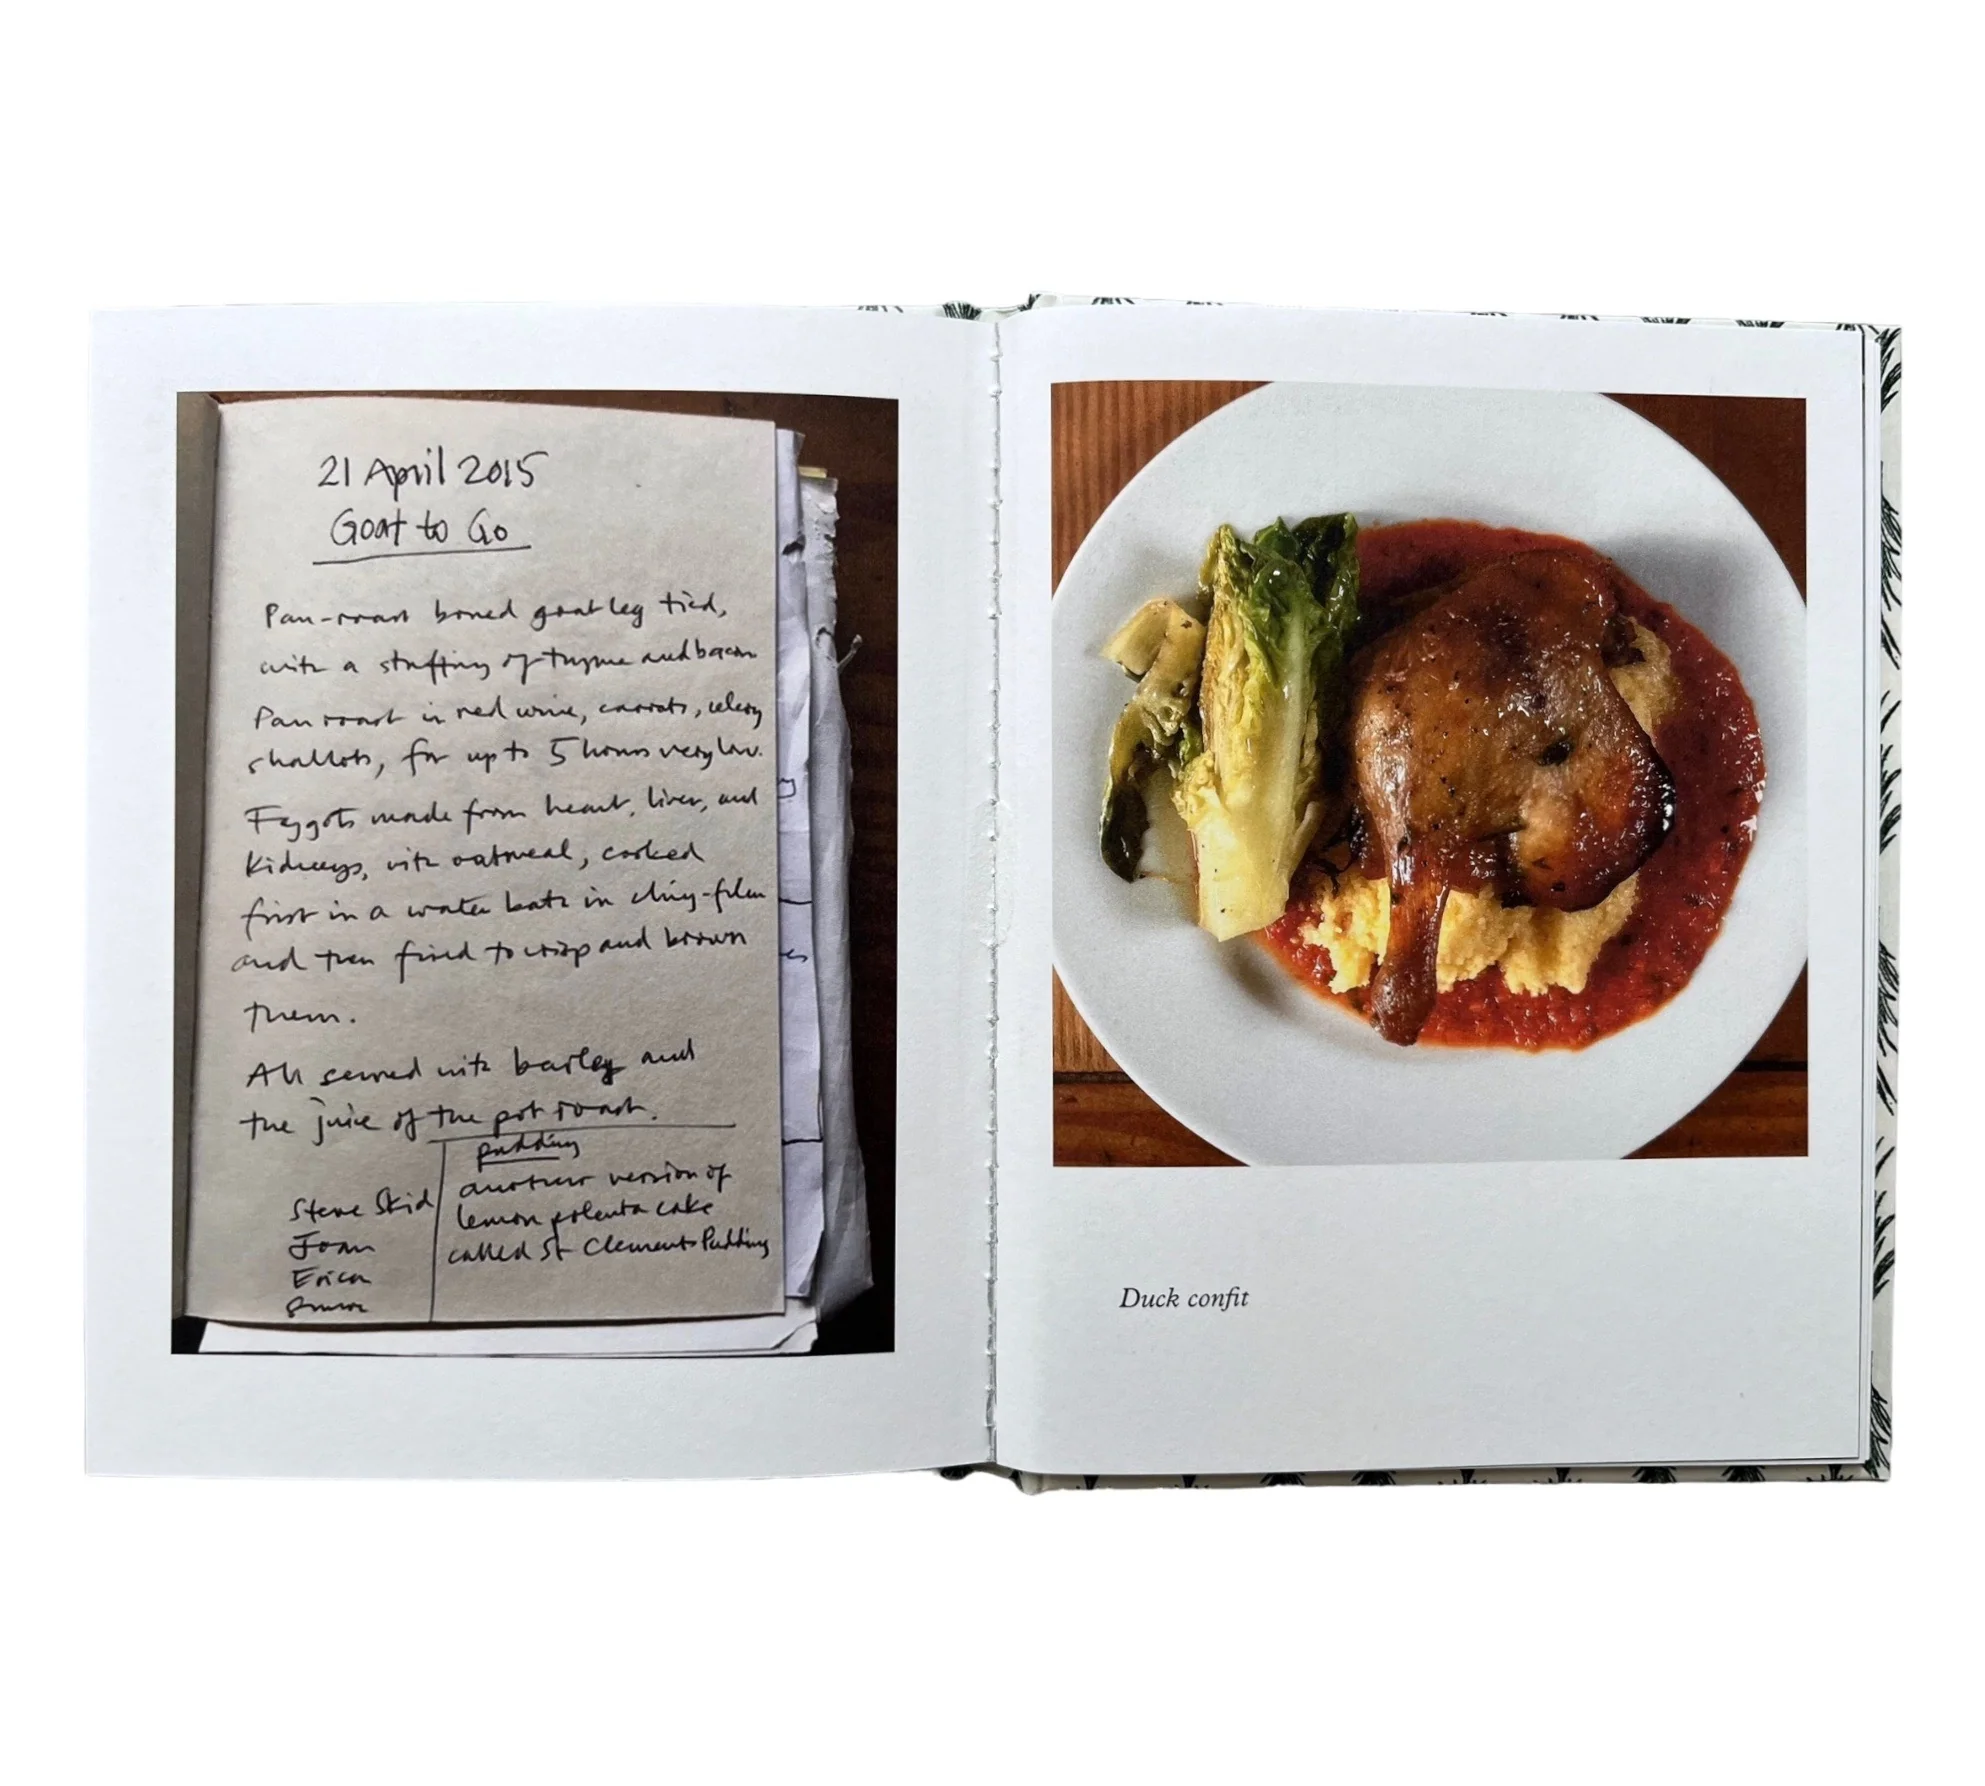 21 April 2015
Goat to Go
Pan-roast boned goat leg tied,
with a stuffing of thyme and bacon
Pan roast in red wine, carrots, celery
shallots, for up to 5 hours very low.
Faggots made from heart, liver, and
kidneys, with oatmeal, cooked
first in a water bath in cling-film
and then fried to crisp and brown
them.
All served with barley and
the juice of the pot roast.
Steve Skid
Joan
Erica
pudding
another version of
lemon polenta cake
called St Clements Pudding
Duck confit